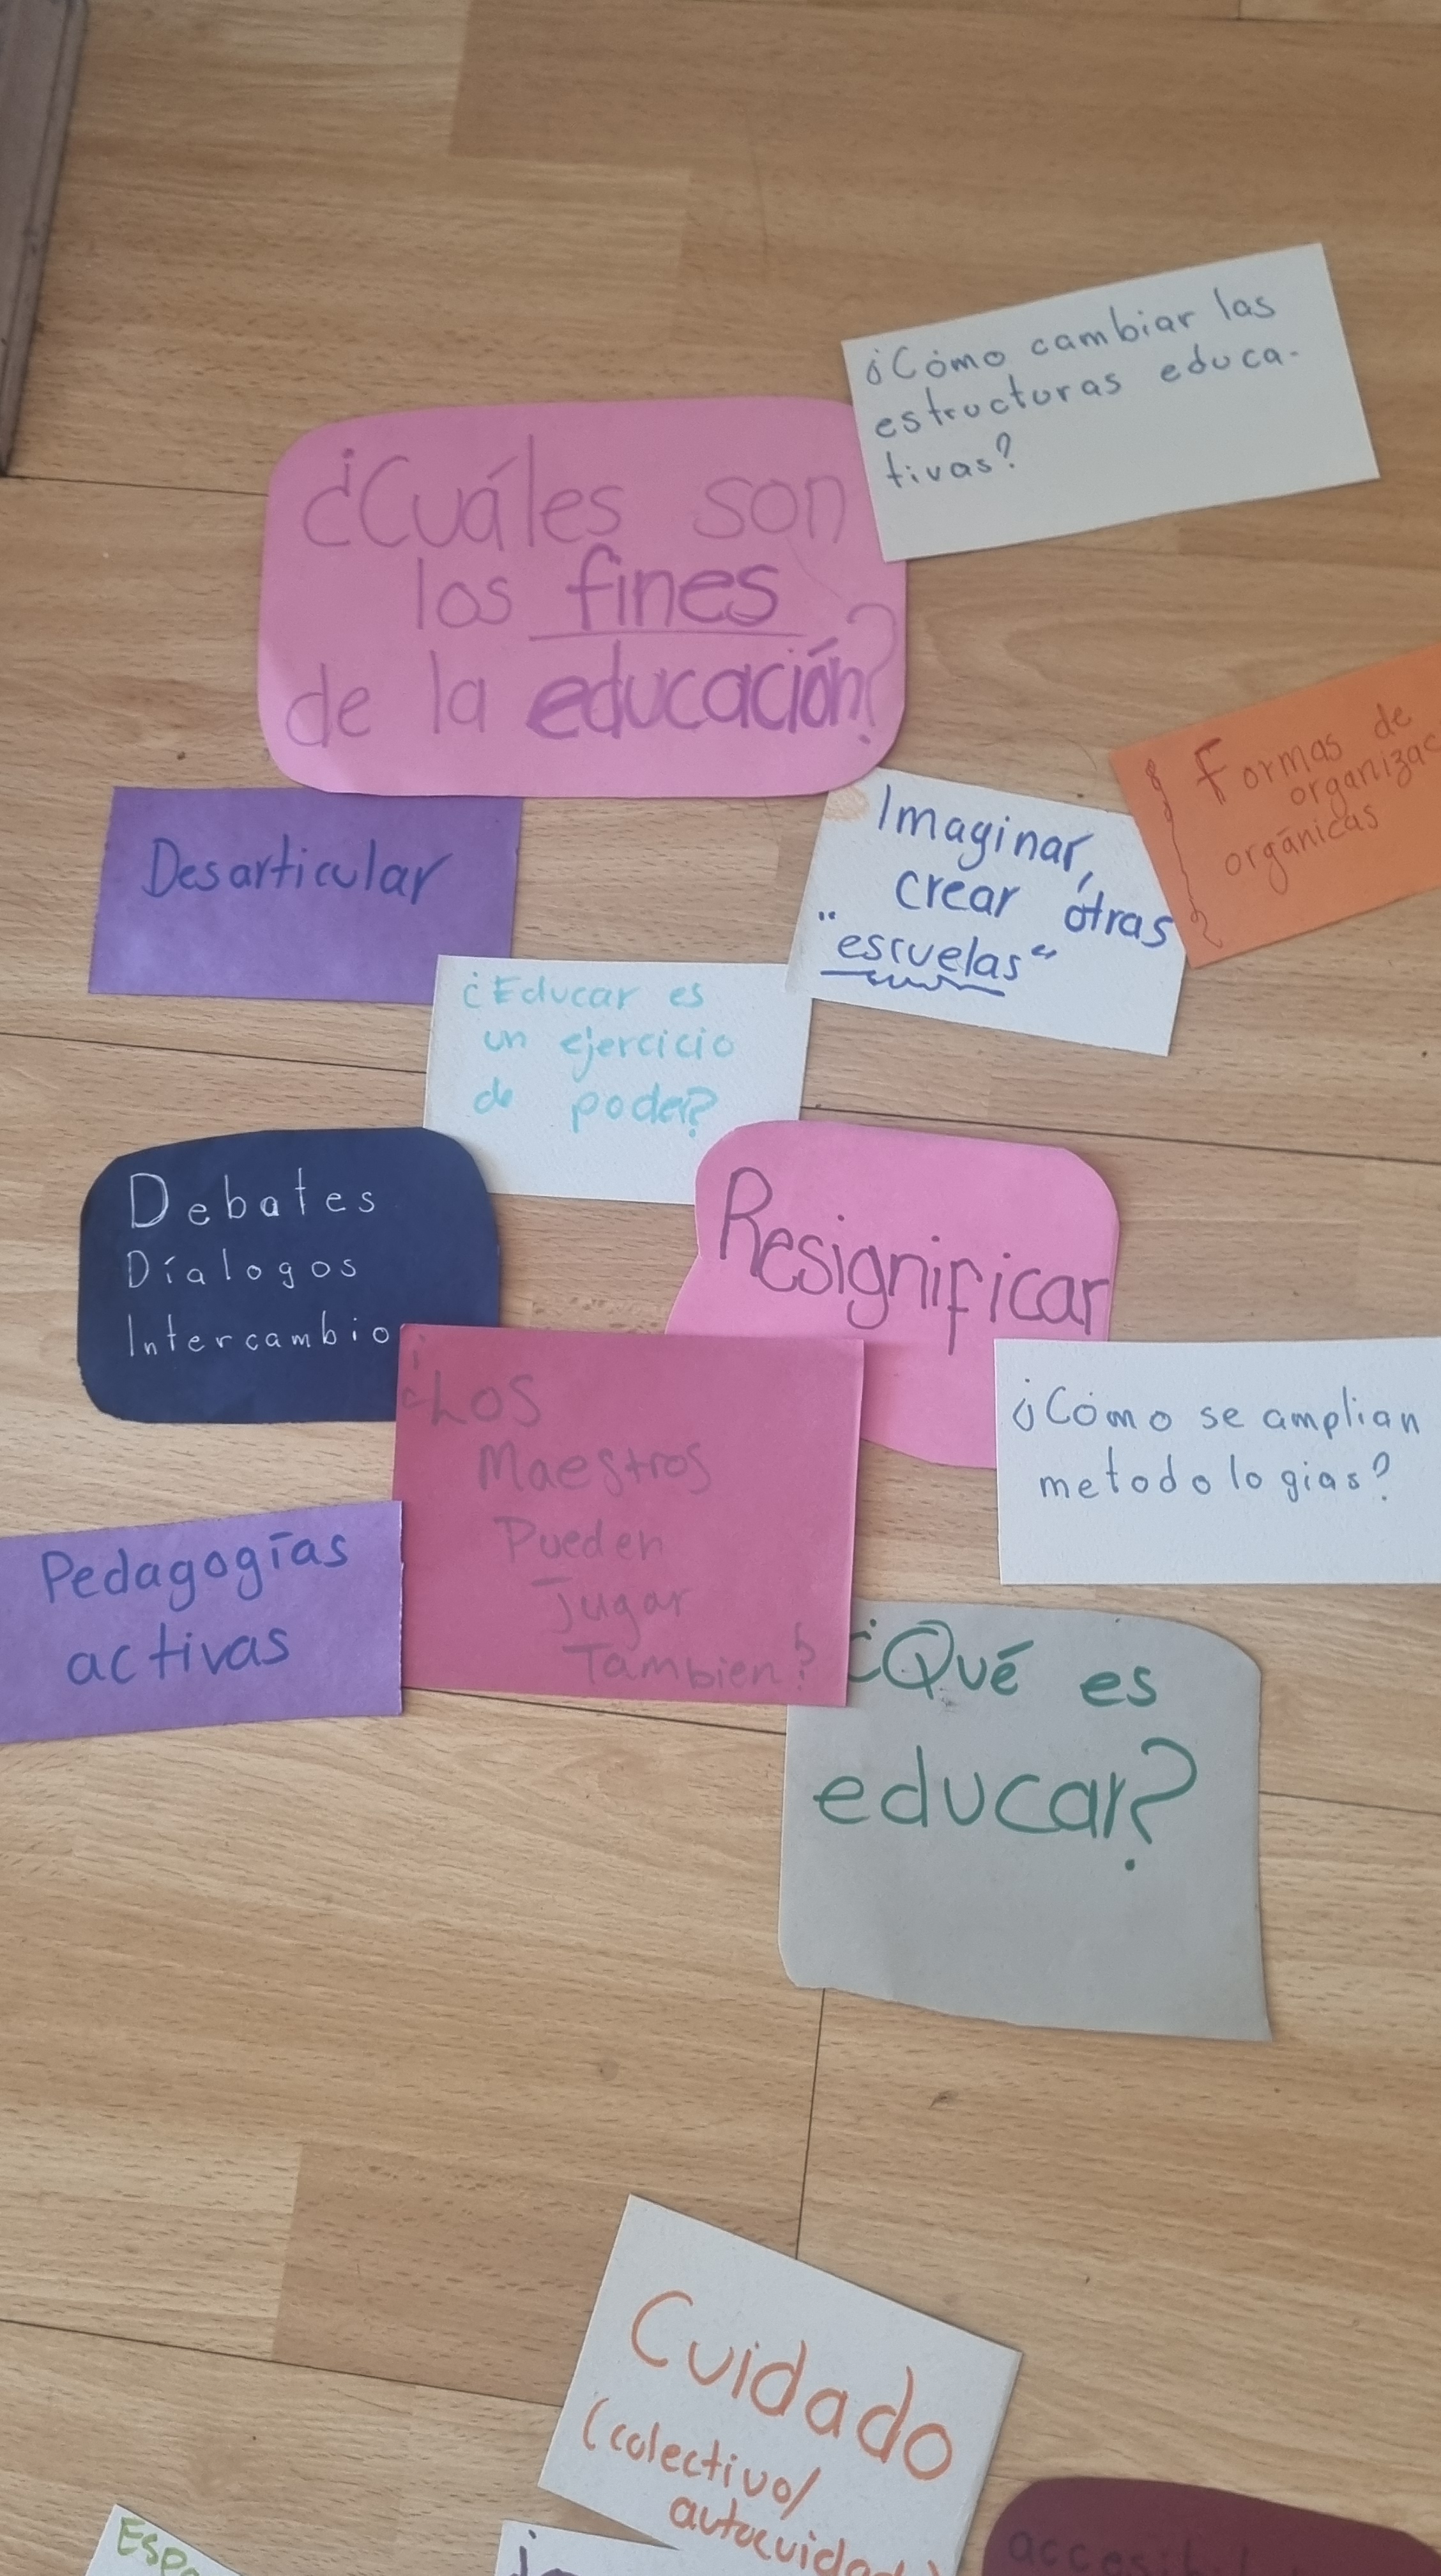 ¿Cómo cambiar las
estructuras educa-
tivas?
¿Cuáles son
los fines
de la educación?
Formas de
orgánicas
Desarticular
Imaginar,
crear otras
"escuelas"
¿Educar es
un ejercicio
de poder?
Debates
Díalogos
Intercambio
Resignificar
¿Los
Maestros
Pueden
Jugar
Tambien?
¿Cómo se amplian
metodologias?
Pedagogías
activas
¿Qué es
educar?
Cuidado
(colectivo/